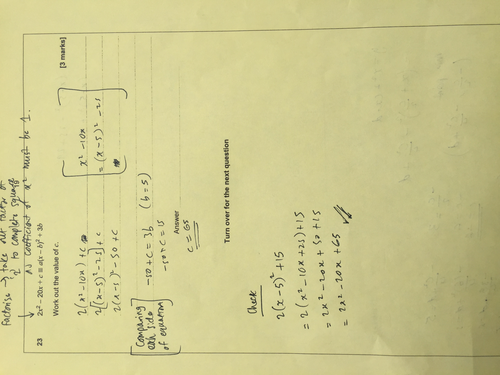 Factorise → take out factor of
2 to complete square
as coefficient of x² must be 1.
23 2x² – 20x + c ≡ a(x – b)² + 3b
Work out the value of c.
[3 marks]
2(x² -10x) + c
2[(x-5)² - 25] + c
2(x-5)² - 50 + c
x² - 10x
= (x-5)² - 25
[Comparing
each side
of equation]
-50 + c = 3b (b = 5)
-50 + c = 15
Answer
c = 65
Turn over for the next question
Check
2(x-5)² + 15
= 2(x² - 10x + 25) + 15
= 2x² - 20x + 50 + 15
= 2x² - 20x + 65